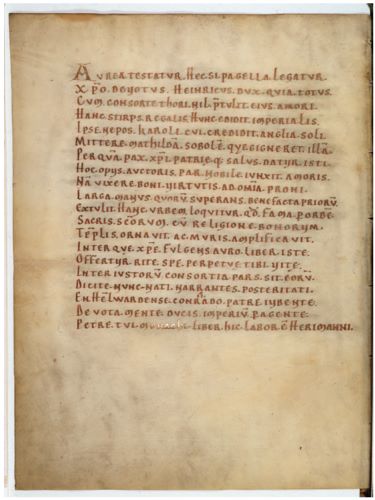 AUREA TESTATUR. HEC SI PAGELLA LEGATUR.
XPŌ DEVOTUS. HEINRICUS DUX. QUIA TOTUS.
CUM CONSORTE THORI. NIL PTULIT EIUS AMORI.
HANC STIRPS REGALIS. HUNC EDIDIT IMPERIALIS.
IPSE NEPOS KAROLI. CUI CREDIDIT ANGLIA SOLI.
MITTERE MATHILDĀ. SOBOLĒ QUE GIGNERET. ILLĀ.
PER QUĀ PAX XPI PATRIEQ; SALUS DATUR ISTI.
HOC OPUS AUCTORIS. PAR NOBILE IUNXIT AMORIS.
NĀ VIXERE BONI. VIRTUTIS AD OMIA PRONI.
LARGA MANUS QUORŪ SUPERANS BENEFACTA PRIORŪ
EXTULIT HANC URBEM. LOQUITUR QD FAMA P ORBĒ.
SACRIS SCORUM CŪ RELIGIONE BONORUM.
TĒPLIS ORNAVIT. AC MURIS AMPLIFICAVIT.
INTER QUE XPE FULGENS AURO LIBER ISTE.
OFFERTUR RITE. SPE PERPETUE TIBI VITE.
INTER IUSTORŪ CONSORTIA PARS SIT EORŪ.
DICITE NUNC NATI NARRANTES POSTERITATI.
EN HELWARDENSE CONRADO PATRE IUBENTE.
DEVOTA MENTE. DUCIS IMPERIŪ PAGENTE.
PETRE TUI MONACHI LIBER HIC LABOR Ē HERIMANNI.